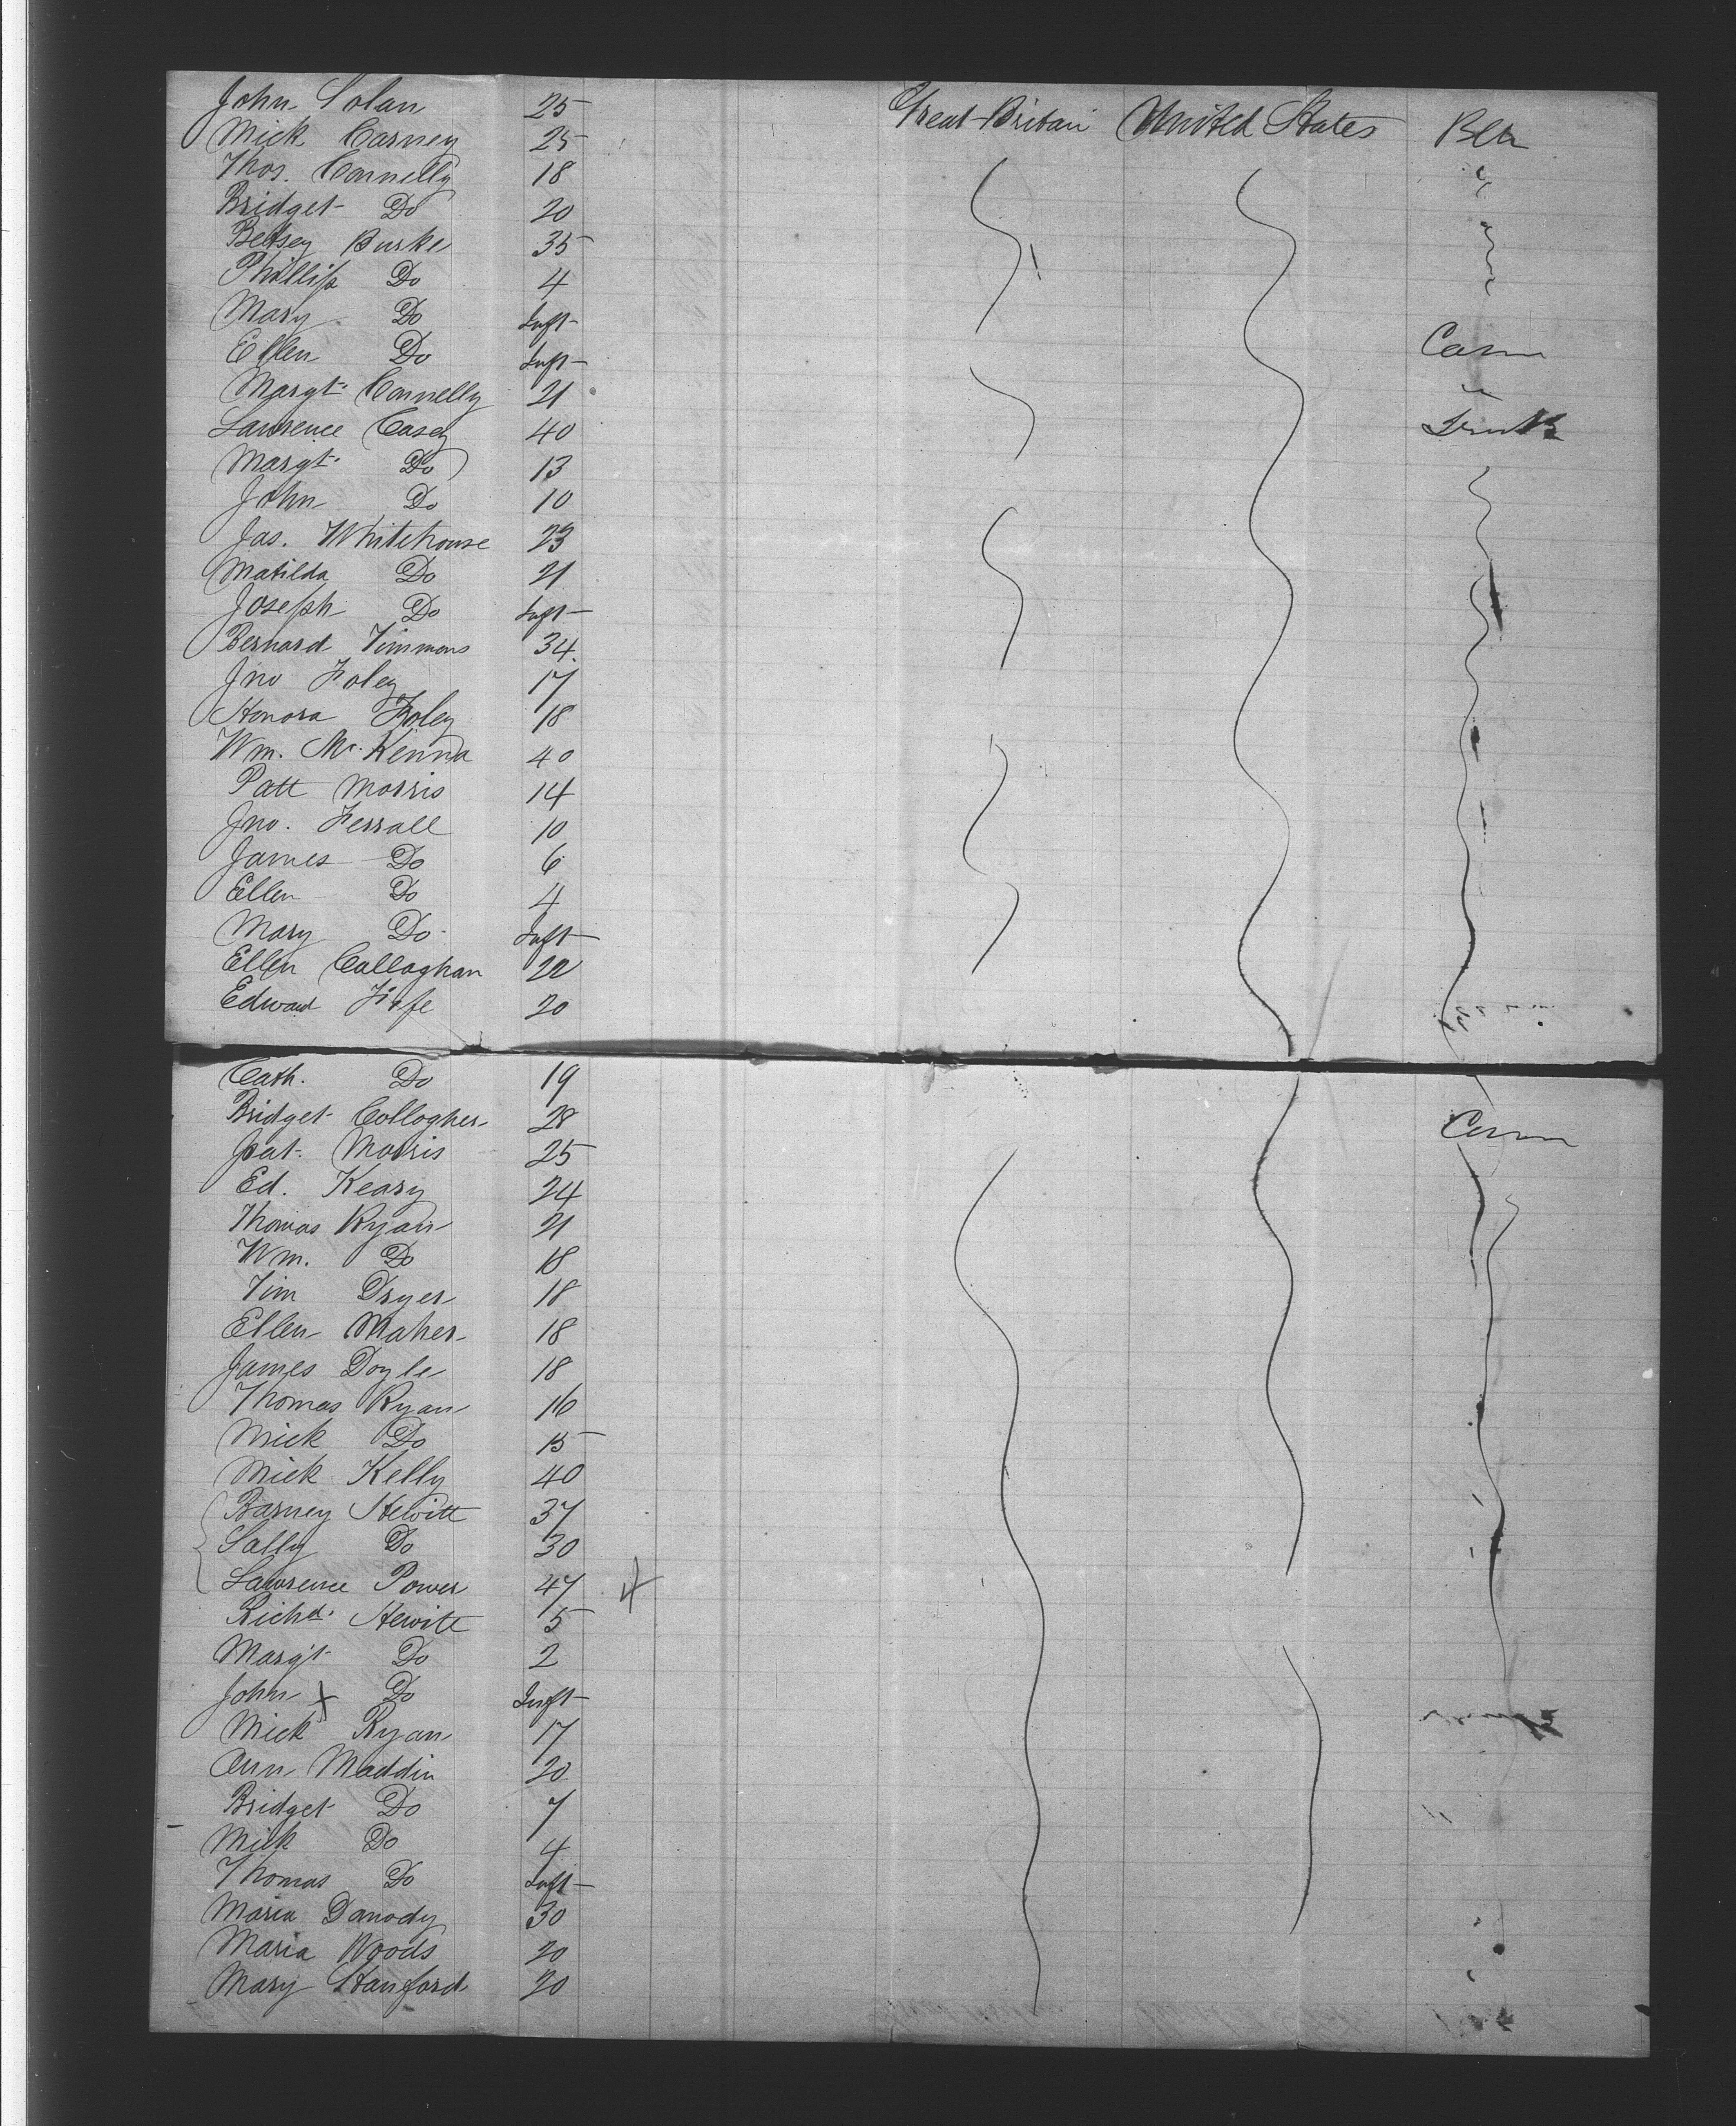 John Solan 25 Great Britain United States Blk
Mick Carney 25
Thos. Connelly 18
Bridget Do 20
Betsey Burke 35
Phillip Do 4
Mary Do Inft
Ellen Do Inft
Margt. Connelly 21
Lawrence Casey 40
Margt. Do 13
John Do 10
Jas. Whitehouse 23
Matilda Do 21
Joseph Do Inft
Bernard Timmons 34
Jno Foley 17
Honora Foley 18
Wm. McKenna 40
Patt Morris 14
Jno. Ferrall 10
James Do 6
Ellen Do 4
Mary Do Inft
Ellen Callaghan 22
Edward Fife 20
Cath. Do 19
Bridget Collogher 28
Pat. Morris 25
Ed. Keary 24
Thomas Ryan 21
Wm. Do 18
Tim Dryer 18
Ellen Maher 18
James Doyle 18
Thomas Ryan 16
Mick Do 15
Mick Kelly 40
Barney Hewitt 37
Sally Do 30
Lawrence Power 47 x
Richd. Hewitt 5
Margt Do 2
John x Do Inft
Mick Ryan 17
Ann Maddin 20
Bridget Do 7
Mick Do 4
Thomas Do Inft
Maria Danody 30
Maria Woods 20
Mary Stanford 20